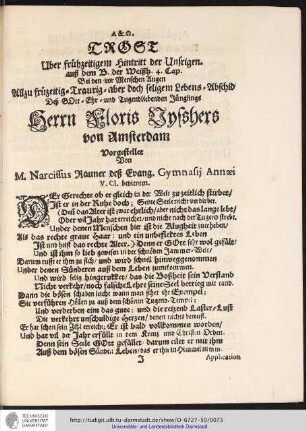 A & Ω.
TROST
Uber frühzeitigem Hintritt der Unsrigen.
auß dem B. der Weißh. 4. Cap.
Bei den vor Menschen Augen
Allzu frühzeitig-Traurig-aber doch seligem Lebens-Abschid
Deß GOtt-Ehr- und Tugendliebenden Jünglings
Herrn Floris Vysshers
von Amsterdam
Vorgestellet
Von
M. Narcissus Rauner deß Evang. Gymnasij Annæi
V. Cl. bedienten.
DEr Gerechte ob er gleich in der Welt zu zeitlich stirbet/
Ist er in der Ruhe doch; Seine Seele nicht verdirbet.
(Deß das Alter ist zwar ehrlich/aber nicht das lange lebt/
Oder vil Jahr hat erreichet/und nicht nach der Tugend strebt.
Unter denen Menschen hier ist die Klugheit
Als das rechte graue Haar: und ein unbeflecktes Leben
Ist und heist das rechte Alter.) Denn er GOtt sehr wol gefält:
Und ist ihm so lieb gewesen in der schnöden Jammer-Welt/
Darum nahm er ihn zu sich/und wird schnell hinweggenommen
Unter denen Sündern auß dem Leben
Und wird selig hingerucket/das die Boßheit sein Verstand
Nicht verkehr/noch falsche Lehre seine Seel betrieg wie
Dann die bösen schaden leicht wann man sihet ihr Exempel;
Sie verführen Hertzen zu auß dem schönen Tugend-Tempel:
Und verderben ein das gute: und die reitzend Laster-Lust
Die verkehrt unschuldige Hertzen/denen nichts bewust.
Er hat schon sein Zihl erreicht; Er ist bald vollkommen worden/
Und hat vil der Jahr erfüllt in dem Kreutz und Christen Orden.
Denn sein Seele GOtt gefället/darum eilet er mit ihm
Auß dem bösen Sünden Leben/das er ihn im Himmel
J
Application
TECHNISCHE UNIVERSITÄT DARMSTADT
http://tudigit.ulb.tu-darmstadt.de/show/O-6727-50/0073
Universitäts- und Landesbibliothek Darmstadt